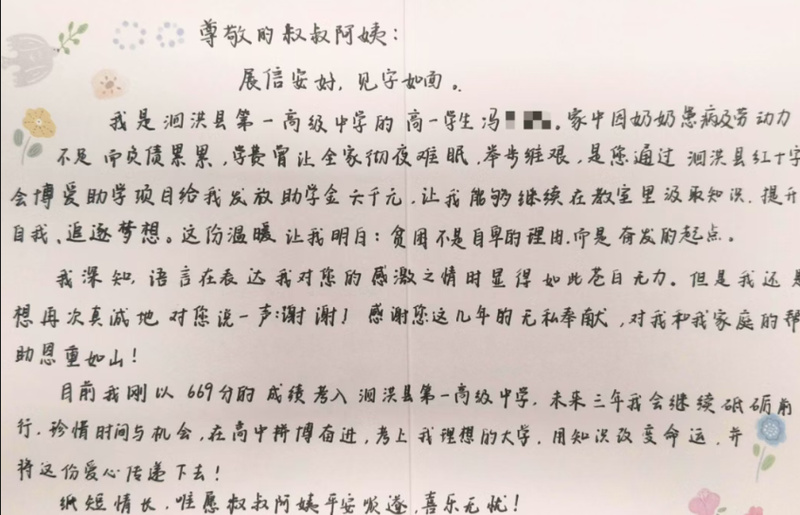 尊敬的叔叔阿姨：
展信安好，见字如面。
我是泗洪县第一高级中学的高一学生冯。家中因奶奶患病及劳动力
不足而负债累累，学费曾让全家彻夜难眠，举步维艰，是您通过泗洪县红十字
会博爱助学项目给我发放助学金六千元，让我能够继续在教室里汲取知识，提升
自我、追逐梦想。这份温暖让我明白：贫困不是自卑的理由，而是奋发的起点。
我深知，语言在表达我对您的感激之情时显得如此苍白无力。但是我还是
想再次真诚地对您说一声：谢谢！感谢您这几年的无私奉献，对我和我家庭的帮
助恩重如山！
目前我刚以669分的成绩考入泗洪县第一高级中学，未来三年我会继续砥砺前
行，珍惜时间与机会，在高中拼博奋进，考上我理想的大学，用知识改变命运，并
将这份爱心传递下去！
纸短情长，唯愿叔叔阿姨平安顺遂，喜乐无忧！